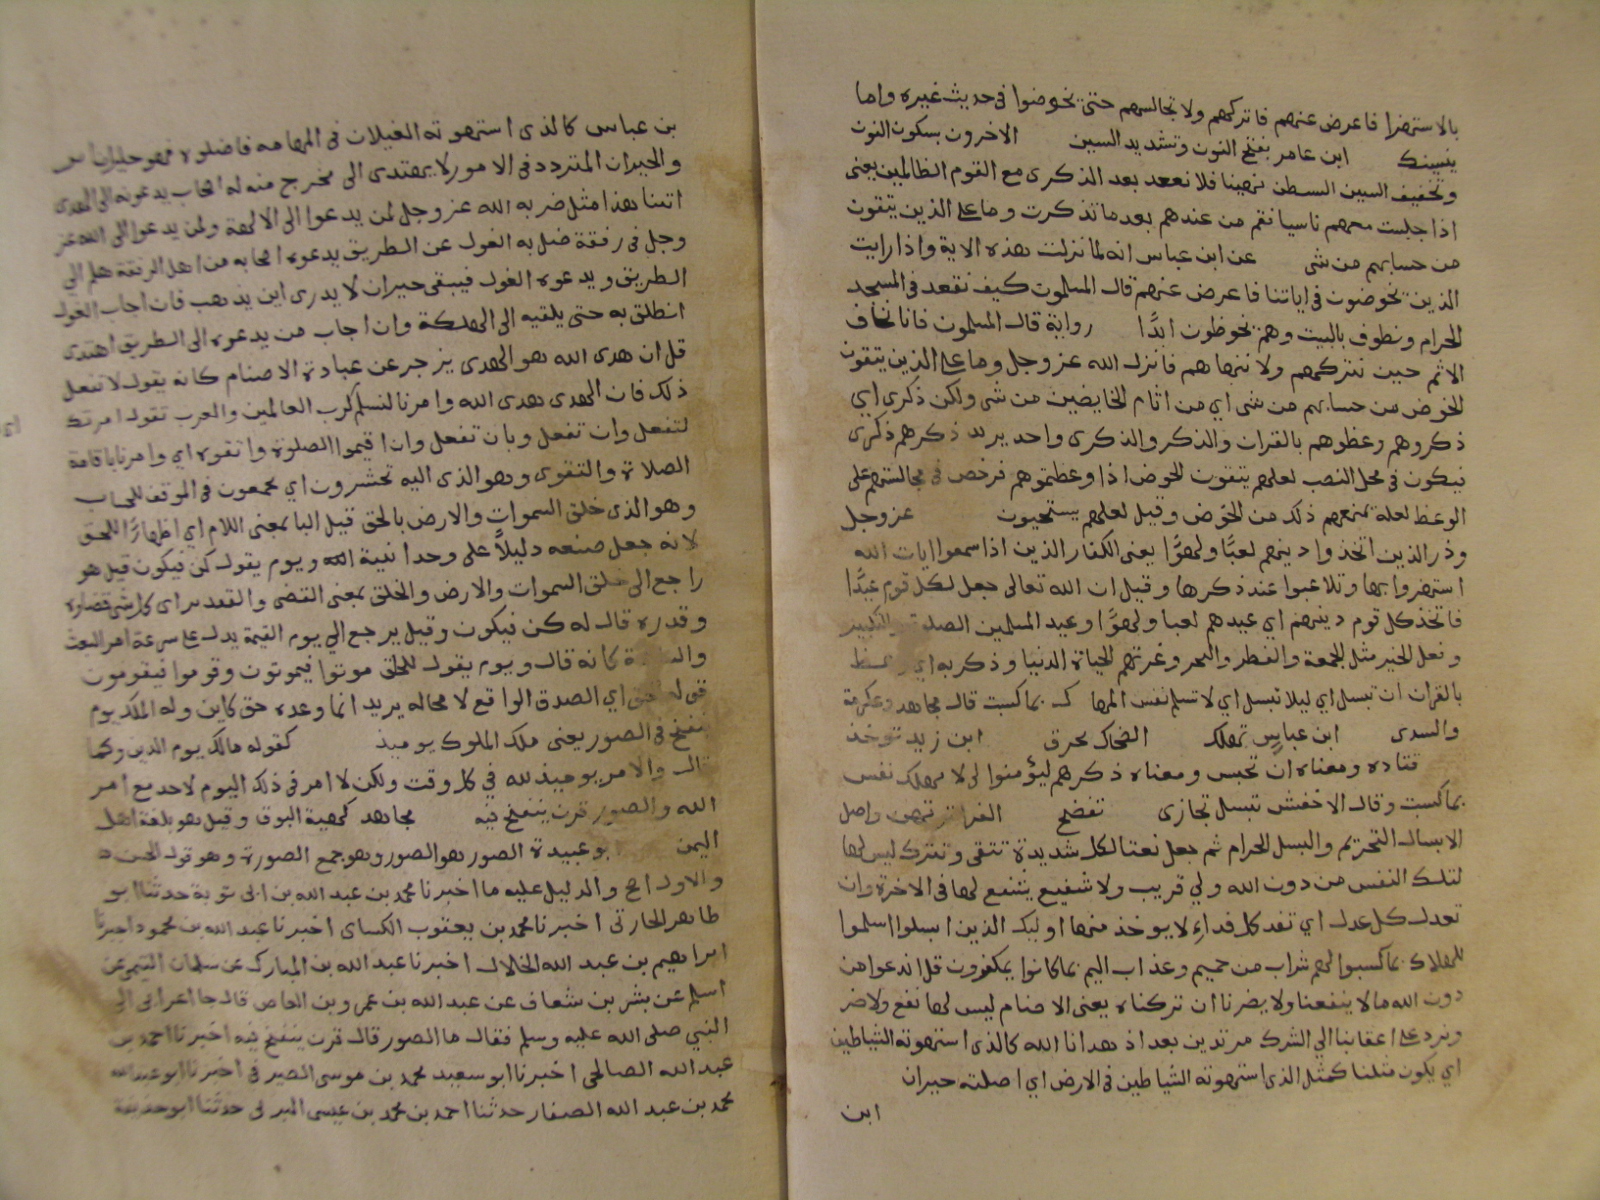 بالاستهزا فاعرض عنهم فاتركهم ولا تجالسهم حتى يخوضوا في حديث غيره واما
ينسينك ابن عامر بفتح النون وتشديد السين الاخرون بسكون النون
وتخفيف السين الشيطن نهينا فلا تقعد بعد الذكرى مع القوم الظالمين يعني
اذا جلست معهم ناسيا فقم من عندهم بعد ما تذكرت وما على الذين يتقون
من حسابهم من شى عن ابن عباس انه لما نزلت هذه الاية واذا رايت
الذين يخوضون في اياتنا فاعرض عنهم قال المسلمون كيف نقعد في المسجد
الحرام ونطوف بالبيت وهم يخوضون ابدًا رواية قال المسلمون فانا نخاف
الاثم حين نتركهم ولا ننهاهم فانزل الله عز وجل وما على الذين يتقون
الخوض من حسابهم من شى اي من اثام الخايضين من شى ولكن ذكرى اي
ذكروهم وعظوهم بالقران والذكر والذكرى واحد يريد ذكرهم ذكرى
فيكون في محل النصب لعلهم يتقون الخوض اذا وعظتموهم فرخص في مجالستهم على
الوعظ لعله يمنعهم ذلك من الخوض وقيل لعلهم يستحيون عز وجل
وذر الذين اتخذوا دينهم لعبًا ولهوًا يعنى الكفار الذين اذا سمعوا ايات الله
استهزوا بها وتلاعبوا عند ذكرها وقيل ان الله تعالى جعل لكل قوم عيدًا
فاتخذ كل قوم دينهم اي عيدهم لعبا ولهوًا وعيد المسلمين الصلوة والتكبير
وفعل الخير مثل الجمعة والفطر والنحر وغرتهم الحياة الدنيا وذكر به اي وعظ
بالقران ان تبسل اي ليلا تبسل اي لا تسلم نفس بما كسبت قال مجاهد وعكرمة
والسدى ابن عباس تهلك الضحاك تحرق ابن زيد توخذ
قتاده ومعناه ان تحبس ومعناه ذكرهم ليؤمنوا لى لا تهلك نفس
بما كسبت وقال الاخفش تبسل تجازى تفضح الفرا ترتهن واصل
الابسال التحريم والبسل الحرام ثم جعل نعتا لكل شديدة تتقى وتترك ليس لها
لتلك النفس من دون الله ولي قريب ولا شفيع يشفع لها في الاخرة وان
تعدل كل عدل اي تفد كل فداء لا يوخذ منها اوليك الذين ابسلوا اسلموا
للهلاك بما كسبوا لهم شراب من حميم وعذاب اليم بما كانوا يكفرون قل اندعوا من
دون الله ما لا ينفعنا ولا يضرنا ان تركناه يعنى الاصنام ليس لها نفع ولا ضر
ونرد على اعقابنا الي الشرك مرتدين بعد اذ هدانا الله كالذى استهوته الشياطين
اي يكون مثلنا كمثل الذى استهوته الشياطين في الارض اي اضلته حيران
ابن
بن عباس كالذى استهوته الغيلان في المهامه فاضلوه فهو حيران
والحيران المتردد في الامور لا يهتدى الى مخرج منه له اصحاب يدعونه الى الهدى
ائتنا هذا مثل ضربه الله عز وجل لمن يدعوا الى الالهة ولمن يدعوا الى الله عز
وجل في رفقة ضل به الغول عن الطريق يدعوه اصحابه من اهل الرفقة هلم الي
الطريق ويدعوه الغول فيبقى حيران لا يدرى اين يذهب فان اجاب الغول
انطلق به حتى يلقيه الى الهلكة وان اجاب من يدعوه الى الطريق اهتدى
قل ان هدى الله هو الهدى يزجر عن عبادة الاصنام كانه يقول لا تفعل
ذلك فان الهدى هدى الله وامرنا لنسلم لرب العالمين والعرب تقول امرتك
لتفعل وان تفعل وبان تفعل وان اقيموا الصلوة واتقوه اي وامرنا باقامة
الصلاة والتقوى وهو الذى اليه تحشرون اي تجمعون في الموقف للحساب
وهو الذى خلق السموات والارض بالحق قيل البا بمعنى اللام اي اظهارًا للحق
لانه جعل صنعه دليلاً على وحدانية الله ويوم يقول كن فيكون قيل هو
راجع الى خلق السموات والارض والخلق بمعنى القضى والقدر اى كل شى قضاه
وقدره قال له كن فيكون وقيل يرجع الي يوم القيمة يدل على سرعة امر البعث
كانه قال ويوم يقول للخلق موتوا فيموتون وقوموا فيقومون
قوله الحق اي الصدق الواقع لا محاله يريد انما وعده حق كاين وله الملك يوم
ينفخ في الصور يعنى ملك الملوك يوميذ كقوله مالك يوم الدين وكما
قال والامر يوميذ لله في كل وقت ولكن لا امر في ذلك اليوم لاحد مع امر
الله والصور قرن ينفخ فيه مجاهد كهيية البوق وقيل هو بلغة اهل
اليمن بوعبيدة الصور هو الصور وهو جمع الصورة وهو قول الحسن
والاول اصح والدليل عليه ما اخبرنا محمد بن عبد الله بن ابى توبة حدثنا ابو
طاهر الحارثى اخبرنا محمد بن يعقوب الكساى اخبرنا عبد الله بن محمود اخبرنا
ابراهيم بن عبد الله الخلال اخبرنا عبد الله بن المبارك عن سليمان التيمي عن
اسلم عن بشر بن شغاف عن عبد الله بن عمرو بن العاص قال جا اعرابى الى
النبي صلى الله عليه وسلم فقال ما الصور قال قرن ينفخ فيه اخبرنا احمد بن
عبد الله الصالحى اخبرنا ابو سعيد محمد بن موسى الصيرفى اخبرنا ابو عبد الله
محمد بن عبد الله الصفار حدثنا احمد بن محمد بن عيسى البرتى حدثنا ابو حذيفة